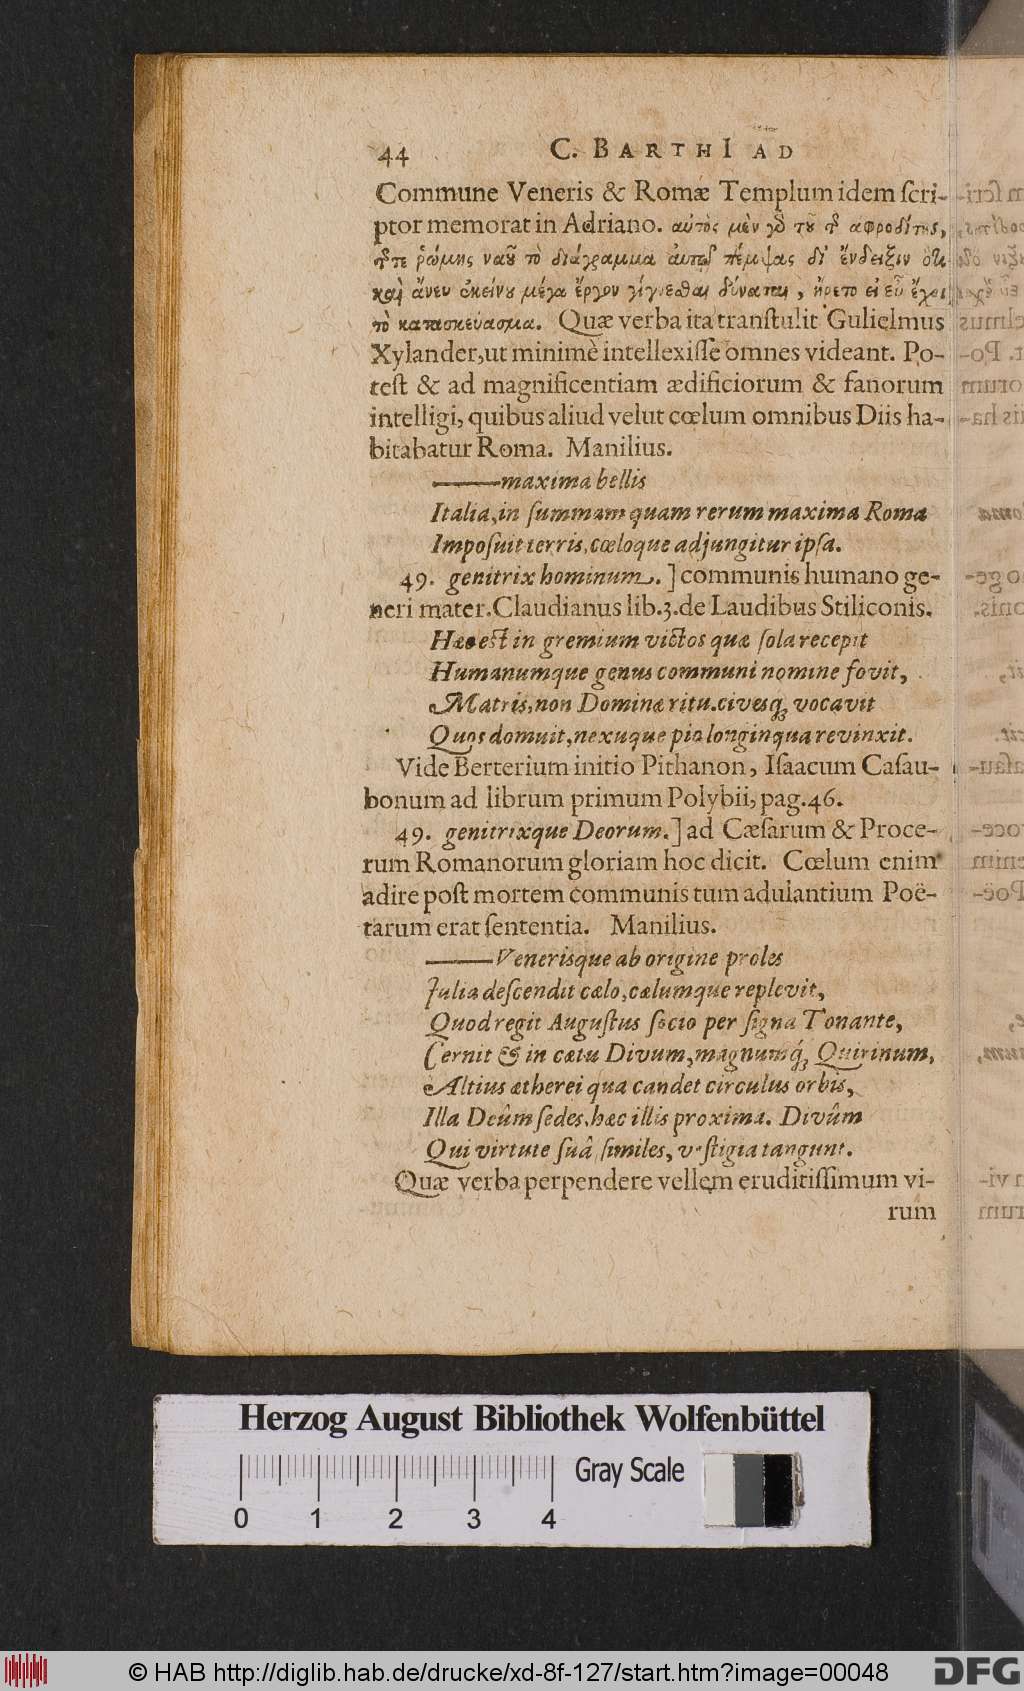 44 C. BARTHI AD
Commune Veneris & Romæ Templum idem ſcri-
ptor memorat in Adriano. αὐτὸς μὲν γὸ τοῦ τ̃ αφροδίτης,
τ̃ τε ῥώμης ναοῦ τὸ διάγραμμα αὐτῷ πέμψας δι᾽ ἔνδειξιν ὅτι
καὶ ἄνευ ἐκείνου μέγα ἔργον γίγνεσθαι δύναται, ἤρετο εἰ εὖ ἔχοι
τὸ κατασκεύασμα. Quæ verba ita tranſtulit Gulielmus
Xylander, ut minimè intellexiſſe omnes videant. Po-
teſt & ad magnificentiam ædificiorum & fanorum
intelligi, quibus aliud velut cœlum omnibus Diis ha-
bitabatur Roma. Manilius.
——maxima bellis
Italia, in ſummam quam rerum maxima Roma
Impoſuit terris, cœloque adjungitur ipſa.
49. genitrix hominum.] communis humano ge-
neri mater. Claudianus lib. 3. de Laudibus Stiliconis.
Hæc eſt in gremium victos quæ ſola recepit
Humanumque genus communi nomine fovit,
Matris, non Dominæ ritu. civesq; vocavit
Quos domuit, nexuque pio longinqua revinxit.
Vide Berterium initio Pithanon, Iſaacum Caſau-
bonum ad librum primum Polybii, pag. 46.
49. genitrixque Deorum.] ad Cæſarum & Proce-
rum Romanorum gloriam hoc dicit. Cœlum enim
adire poſt mortem communis tum adulantium Poë-
tarum erat ſententia. Manilius.
——Venerisque ab origine proles
Julia deſcendit cælo, cælumque replevit,
Quod regit Auguſtus ſocio per ſigna Tonante,
Cernit & in cætu Divum, magnumq́; Quirinum,
Altius ætherei qua candet circulus orbis,
Illa Deûm ſedes, hæc illis proxima. Divûm
Qui virtute ſuâ ſimiles, veſtigia tangunt.
Quæ verba perpendere vellem eruditiſſimum vi-
rum
Herzog August Bibliothek Wolfenbüttel
Gray Scale
0 1 2 3 4
© HAB http://diglib.hab.de/drucke/xd-8f-127/start.htm?image=00048
DFG